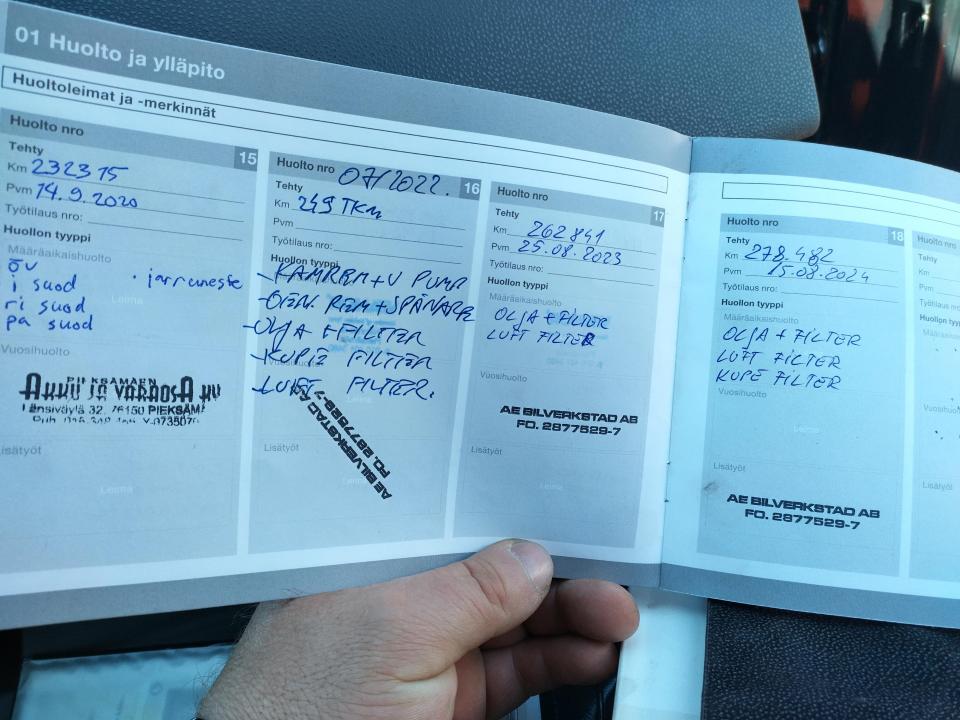 01 Huolto ja ylläpito
Huoltoleimat ja -merkinnät
Huolto nro 15
Tehty
Km 232315
Pvm 14.9.2020
Työtilaus nro:
Huollon tyyppi
Määräaikaishuolto
öv
i suod · jarruneste
ri suod
pa suod
Leima
Vuosihuolto
AKKU JA VARAOSA KY
Länsiväylä 32, 76150 PIEKSÄM
Lisätyöt
Leima
Huolto nro 07/2022. 16
Tehty
Km 249 TKm
Pvm
Työtilaus nro:
Huollon tyyppi
-KAMREM+V PUMP
-OLJA + FILTER
-KUPE FILTER
Vuosihuolto
-LUFT FILTER.
AE BILVERKSTAD AB
FO. 2877529-7
Lisätyöt
Leima
Huolto nro 17
Tehty
Km 262841
Pvm 25.08.2023
Työtilaus nro:
Huollon tyyppi
Määräaikaishuolto
OLJA + FILTER
LUFT FILTER
Vuosihuolto
AE BILVERKSTAD AB
FO. 2877529-7
Lisätyöt
Leima
Huolto nro 18
Tehty
Km 278.482
Pvm 15.08.2024
Työtilaus nro:
Huollon tyyppi
Määräaikaishuolto
OLJA + FILTER
LUFT FILTER
KUPE FILTER
Vuosihuolto
Leima
Lisätyöt
AE BILVERKSTAD AB
FO. 2877529-7
Huolto nro
Tehty
Km
Pvm